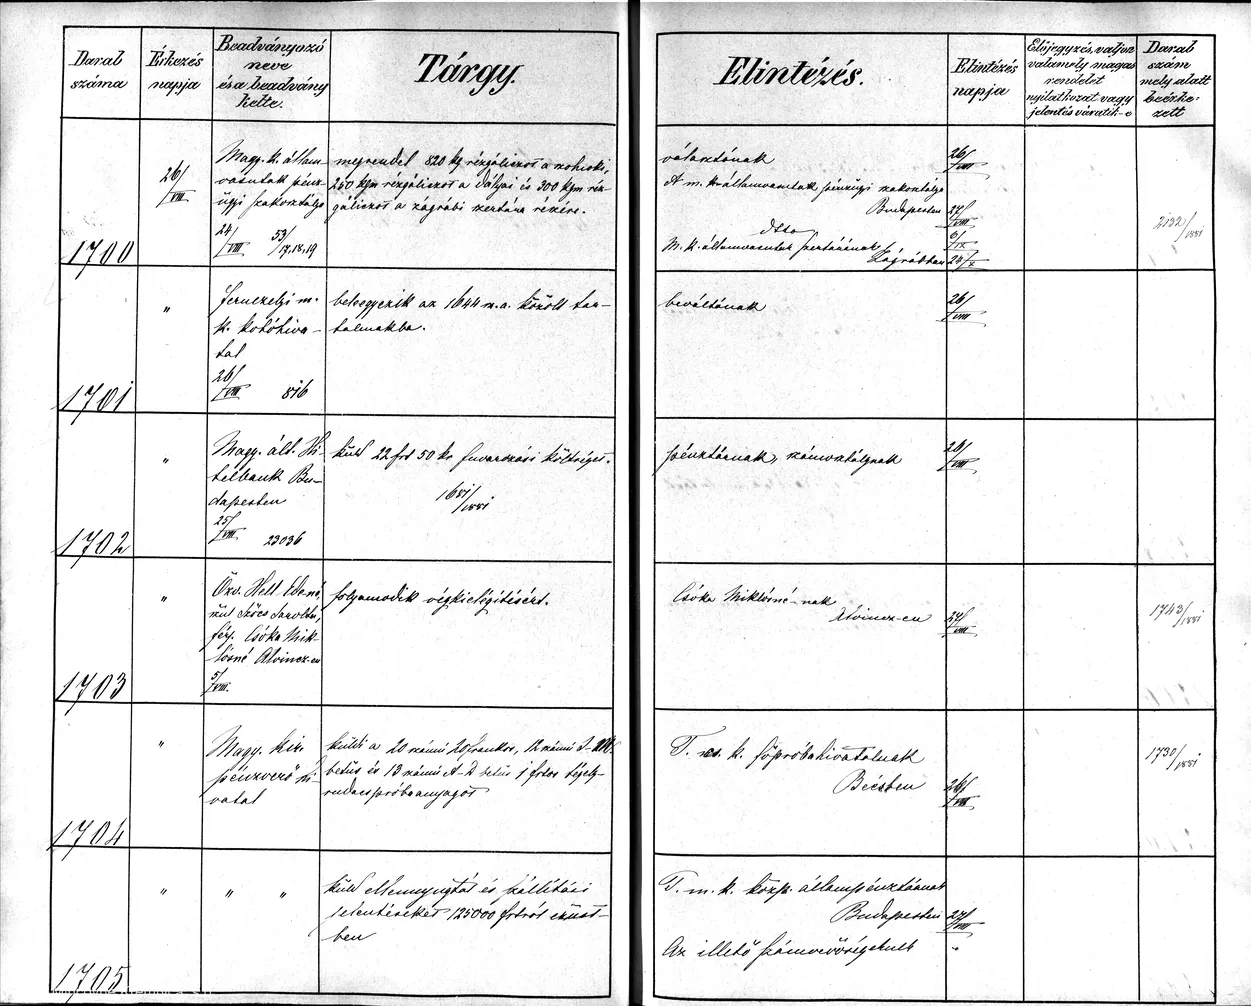 Darab száma
Érkezés napja
Beadványozó neve és a beadvány kelte.
Tárgy.
Elintézés.
Elintézés napja
Előjegyzés, valjon valamely magas rendelet nyilatkozat vagy jelentés váratik-e
Darab szám mely alatt beérkezett
1700
26/VIII
Magy. k. állam-
vasutak pénz-
ügyi szakosztálya
24/VIII 53/17.18.19
megrendel 820 kg rézgáliczot a
250 kgm rézgáliczot a dályai és 300 kgm réz-
gáliczot a zágrábi szertára részére.
választónak
26/VIII
A m. k. államvasutak pénzügyi szakosztálya
Budapesten 27/VIII
dtto 3/IX
M. k. államvasutak szertárának
Zágrábban 24/X
2132/1881
1701
"
Fernezelyi m.
k. kohóhiva-
tal
26/VIII 816
beleegyezik az 1644 sz. a. közölt tar-
talmakba.
beváltónak
26/VIII
1702
"
Magy. ált. Hi-
telbank Bu-
dapesten
25/VIII 23036
küld 22 frt 50 kr fuvarozási költséget.
1681/1881
pénztárnak, számosztálynak
26/VIII
1703
"
Özv. Helt Edéné,
szül Szőcs Sarolta,
férj. Csóka Mik-
lósné Alvincz-en
5/VIII.
folyamodik végkielégítésért.
Csóka Miklósné-nak
Alvincz-en 27/VIII
1743/1881
1704
"
Magy. kir.
pénzverő hi-
vatal
küldi a 20 számú 20 frankos, 12 számú
betüs és 13 számú A-D betüs 1 frtos tégely-
rudacspróbaanyagot
T. cs. k. főpróbahivatalnak
Bécsben 26/VIII
1730/1881
1705
" " "
küld Mennyugtát és szállítási
jelentéseket 125000 frtról ezüst-
ben
T. m. k. közp. állampénztárnak
Budapesten 27/VIII
Az illető számvevőségeknek "